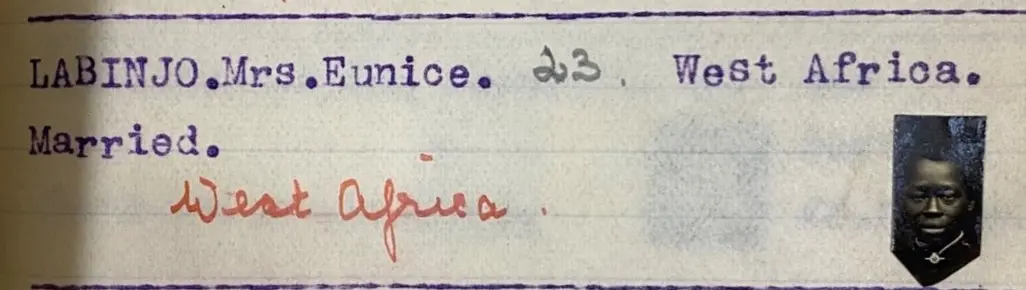 LABINJO.Mrs.Eunice. 23. West Africa.
Married.
West Africa.